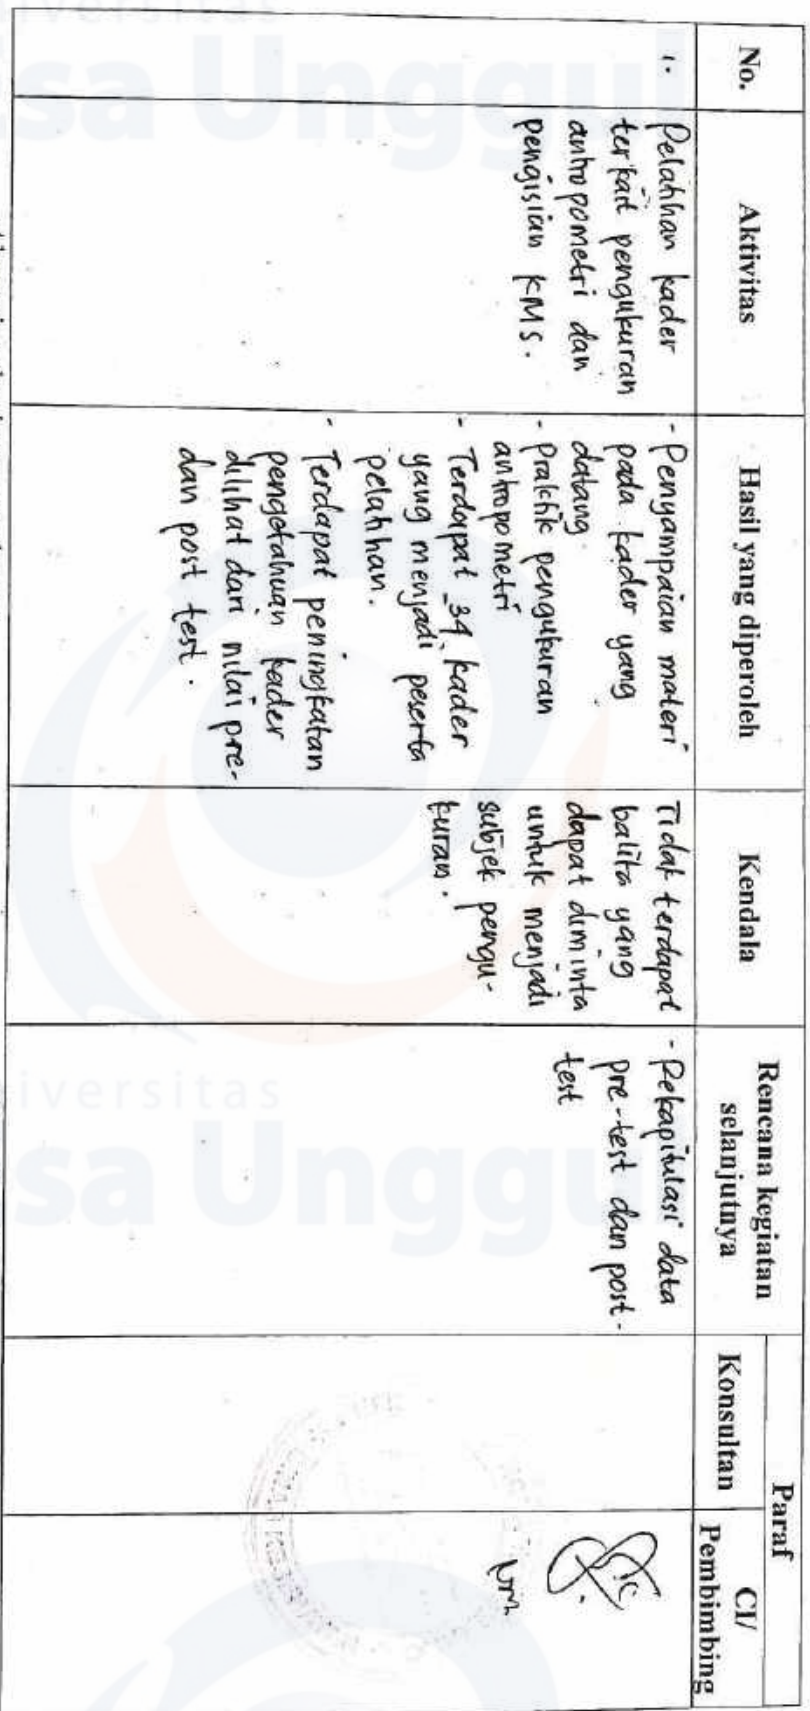 No.
Aktivitas
Hasil yang diperoleh
Kendala
Rencana kegiatan
selanjutnya
Paraf
Konsultan
CI/
Pembimbing
1.
Pelatihan kader
terkait pengukuran
antropometri dan
pengisian KMS.
- Penyampaian materi
pada kader yang
datang.
- Praktik pengukuran
antropometri
- Terdapat 34 kader
yang menjadi peserta
pelatihan.
- Terdapat peningkatan
pengetahuan kader
dilihat dari nilai pre-
dan post test.
Tidak terdapat
balita yang
dapat diminta
untuk menjadi
subjek pengu-
kuran.
- Rekapitulasi data
pre-test dan post-
test
Universitas
Esa Unggul